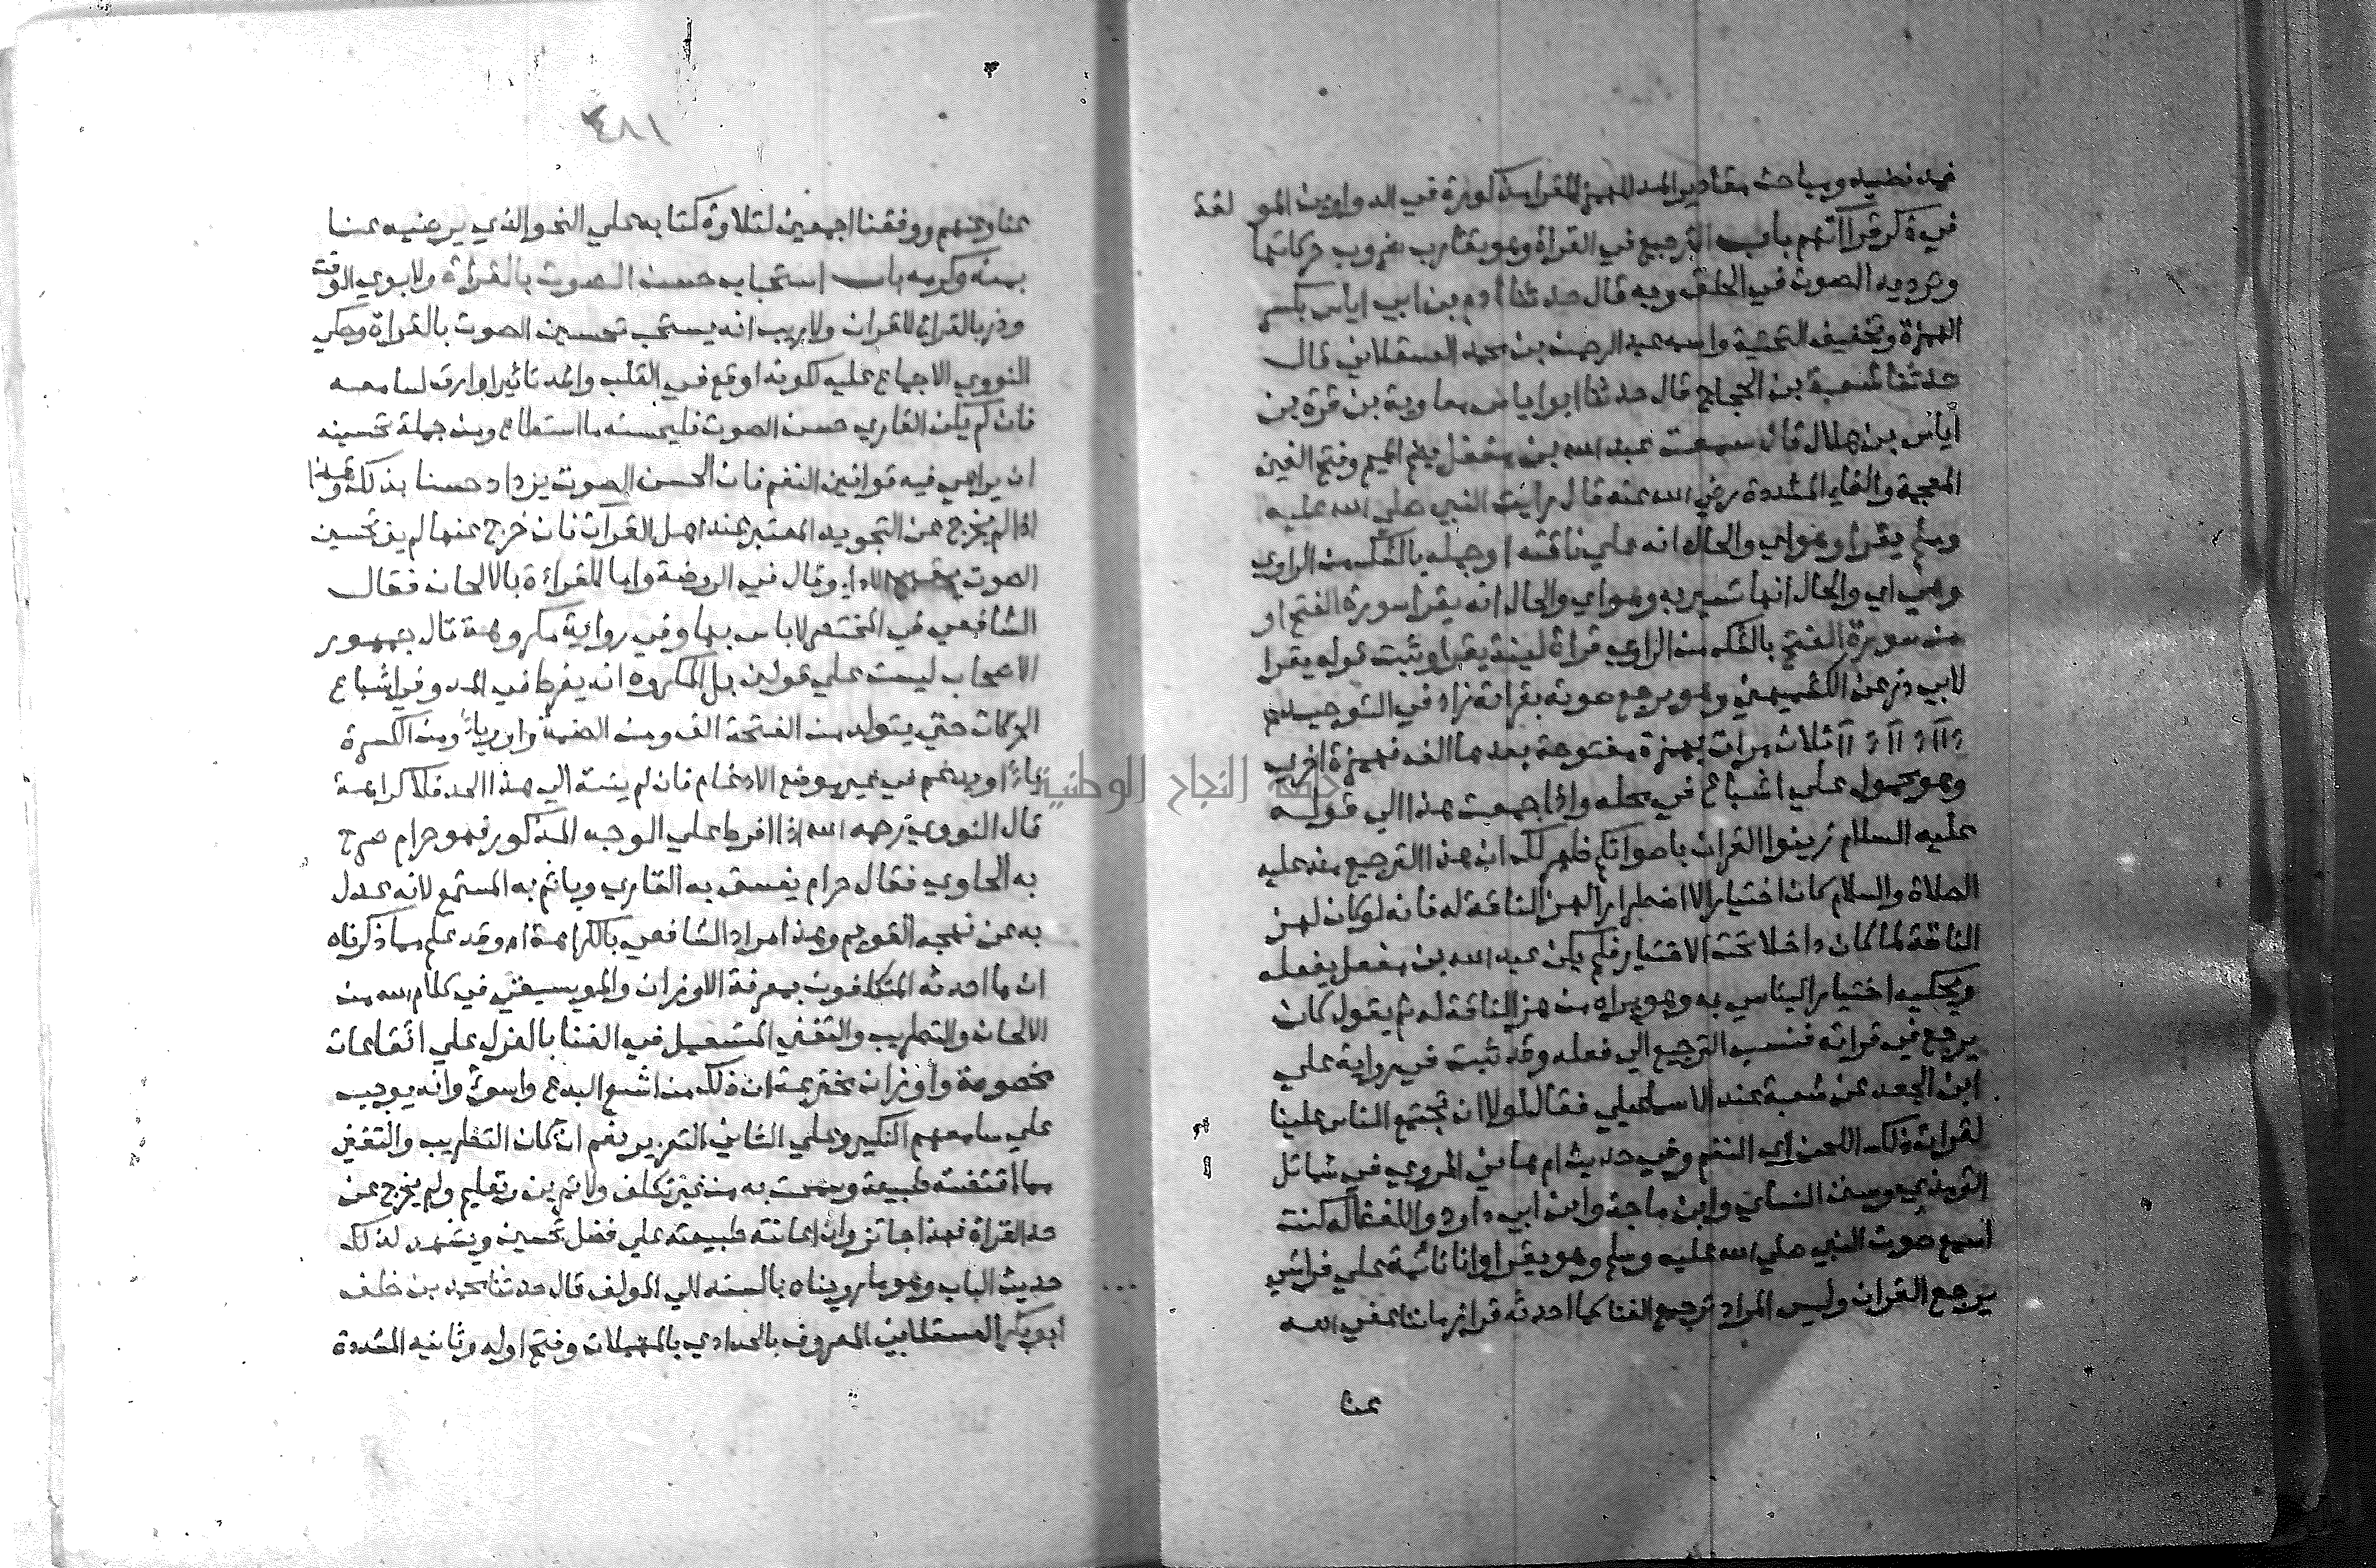 فمد نضيد ومباحث مقادير المد للهمز للقرا مذكورة في الدواوين المولفة
في ذكر قراآتهم باب الترجيع في القراة وهو تقارب ضروب حركاتها
وترديد الصوت في الحلق وبه قال حدثنا ادم بن ابي اياس بكسر
الهمزة وتخفيف التحتية واسمه عبد الرحمن بن محمد العسقلاني قال
حدثنا شعبة بن الحجاج قال حدثنا ابو اياس معاوية بن قرة بن
أياس بن هلال قال سمعت عبد الله بن مغفل بضم الميم وفتح الغين
المعجمة والفاء المشددة رضي الله عنه قال رايت النبي صلي الله عليه
وسلم يقرا وهو اي والحال انه علي ناقته او جمله بالشك من الراوي
وهي اي والحال انها تسير به وهو اي والحال انه يقرا سورة الفتح او
من سورة الفتح بالشك من الراوي قراة لينة يقرا وثبت قوله يقرا
لابي ذر عن الكشميهني وهو يرجع صوته بقراته زاد في التوحيد
ءاا ءاا ءاا ثلاث مرات بهمزة مفتوحة بعدها الف فهمزة اخري
وهو محمول علي اشباع في محله واذا جمعت هذا الي قوله
عليه السلام زينوا القران باصواتكم ظهر لك ان هذا الترجيع منه عليه
الصلاة والسلام كان اختيارا لا اضطرارا لهز الناقة له فانه لو كان لهز
الناقة لما كان داخلا تحت الاختيار فلم يكن عبد الله بن مغفل يفعله
ويحكيه اختيارا ليتاسي به وهو يراه من هز الناقة له ثم يقول كان
يرجع في قراته فنسب الترجيع الي فعله وقد ثبت في رواية علي
ابن الجعد عن شعبة عند الاسماعيلي فقال لولا ان تجتمع الناس علينا
لقرات ذلك اللحن اي النغم وفي حديث ام هاني المروي في شمائل
الترمذي وسنن النسائي وابن ماجة وابن ابي داود واللفظ له كنت
اسمع صوت النبي صلي الله عليه وسلم وهو يقرا وانا نائمة علي فراشي
يرجع القران وليس المراد ترجيع الغنا كما احدثه قرا زماننا عفي الله
عنا
٤٨١
عنا وعنهم ووفقنا اجمعين لتلاوة كتابه علي النحو الذي يرضيه عنا
بمنه وكرمه باب استحباب حسن الصوت بالقراة ولابوي الوقت
وذر بالقراة للقران ولا ريب انه يستحب تحسين الصوت بالقراة وحكي
النووي الاجماع عليه لكونه اوقع في القلب واشد تاثيرا وارق لسامعه
فان لم يكن القاري حسن الصوت فليحسنه ما استطاع ومن جملة تحسينه
ان يراعي فيه قوانين النغم فان الحسن الصوت يزداد حسنا بذلك وهذا
اذا لم يخرج عن التجويد المعتبر عند اهل القرآت فان خرج عنها لم يف تحسين
الصوت بقبح الادا وقال في الروضة واما القراءة بالالحان فقال
الشافعي في المختصر لا باس بها وفي رواية مكروهة قال جمهور
الاصحاب ليست علي قولين بل المكروه ان يفرط في المد وفي اشباع
الحركات حتي يتولد من الفتحة الف ومن الضمة واو ومن الكسرة
ياء او يدغم في غير موضع الادغام فان لم ينته الي هذا الحد فلا كراهة
قال النووي رحمه الله اذا افرط علي الوجه المذكور فهو حرام صرح
به الحاوي فقال حرام يفسق به القاري وياثم به المستمع لانه عدل
به عن نهجه القويم وهذا مراد الشافعي بالكراهة اه وقد علم مما ذكرناه
ان ما احدثه المتكلفون بمعرفة الاوزان والموسيقي في كلام الله من
الالحان والتطريب والتغني المستعمل في الغنا بالغزل علي ايقاعات
مخصوصة واوزان مخترعة ان ذلك من اشنع البدع واسوئ وانه يوجب
علي سامعهم النكير وعلي التالي التعزير نعم ان كان التطريب والتغني
مما اقتضته طبيعة وسمحت به من غير تكلف ولا تمرين وتعليم ولم يخرج عن
حد القراة فهذا جائز وان اعانته طبيعته علي فضل تحسين ويشهد لذلك
حديث الباب وهو ما رويناه بالسند الي المولف قال حدثنا محمد بن خلف
أبو بكر العسقلاني المعروف بالحدادي بالمهملات وفتح اوله وثانيه المشددة
جامعة النجاح الوطنية